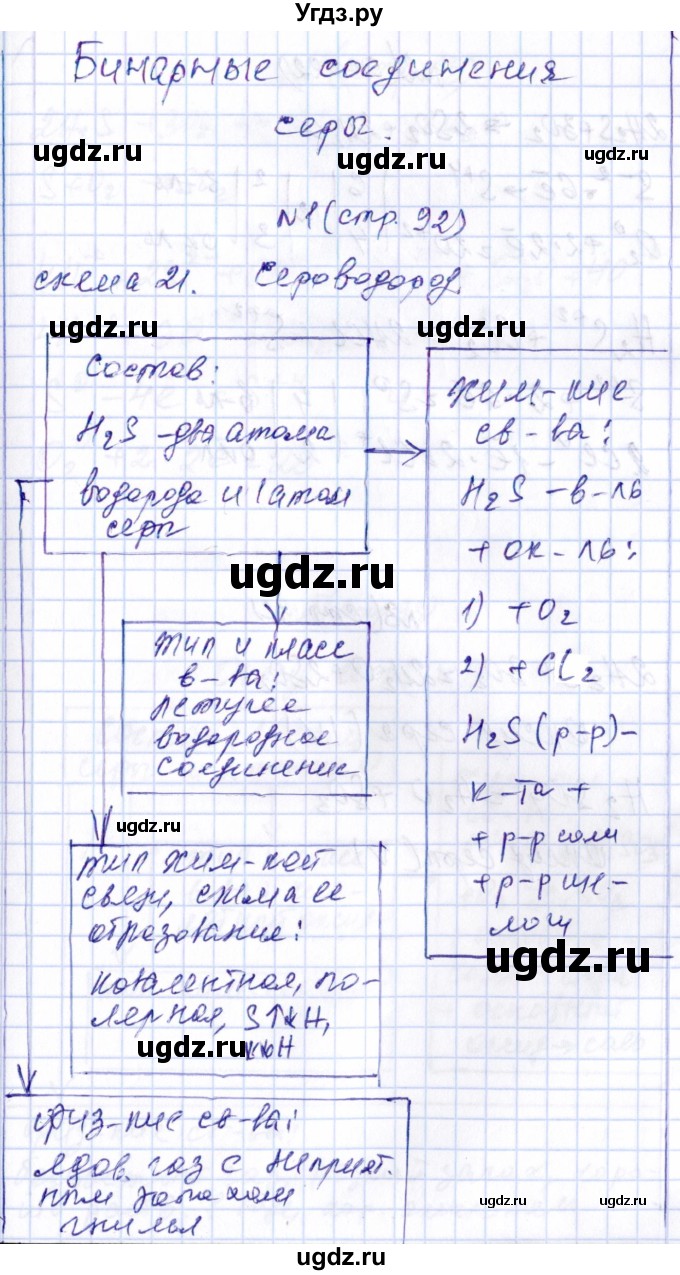 Угдз.ру
Бинарные соединения
серы.
ugdz.ru
ugdz.ru
№1 (стр. 92)
схема 21. Сероводород.
ugdz.ru
ugdz.ru
Состав:
H2S - два атома
водорода и 1 атом
серы
хим-кие
св-ва:
H2S - в-ль
+ ок-ль:
1) + O2
2) + Cl2
H2S (р-р) -
к-та +
+ р-р соли
+ р-р ще-
лочи
ugdz.ru
ugdz.ru
тип и класс
в-ва:
летучее
водородное
соединение
ugdz.ru
тип хим-кой
связи, схема ее
образования:
ковалентная, по-
лерная,
ugdz.ru
физ-кие св-ва:
ядов. газ с неприят.
ным запахом
гнилья
ugdz.ru
ugdz.ru
ugdz.ru